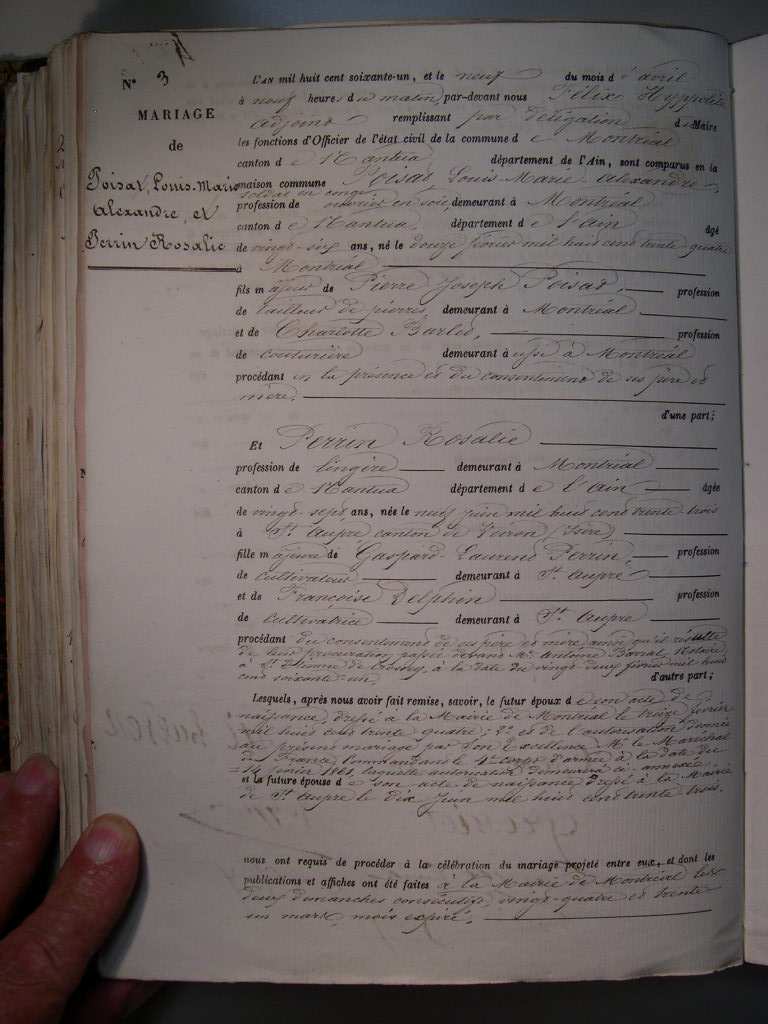 N° 3
MARIAGE
de
Poisat, Louis-Marie
Alexandre, et
Perrin Rosalie
L'AN mil huit cent soixante-un, et le neuf du mois d'avril
à neuf heures du matin, par-devant nous Félix Hyppolite
adjoint remplissant par délégation du Maire
les fonctions d'Officier de l'état civil de la commune de Montréal
canton de Nantua département de l'Ain, sont comparus en la
maison commune Poisat Louis-Marie-Alexandre,
soldat en congé
profession de ouvrier en soie, demeurant à Montréal
canton de Nantua, département de l'ain âgé
de vingt-six ans, né le douze février mil huit cent trente quatre
à Montréal
fils majeur de Pierre Joseph Poisat, profession
de tailleur de pierres, demeurant à Montréal
et de Charlotte Barlet, profession
de couturière demeurant à aussi à Montréal
procédant en la présence et du consentement de ses père et
mère.
d'une part;
Et Perrin Rosalie
profession de lingère demeurant à Montréal
canton de Nantua département de l'ain âgée
de vingt-sept ans, née le neuf juin mil huit cent trente trois
à St. Aupre canton de Voiron (Isère)
fille majeure de Gaspard Laurent Perrin, profession
de cultivateur demeurant à St. Aupre
et de Françoise Delphin profession
de cultivatrice demeurant à St. Aupre
procédant du consentement de ses père et mère ainsi qu'il résulte
de leur procuration passée devant Me. Antoine Notaire
à St. Etienne de Crossey, à la date du vingt-deux février mil huit
cent soixante-un. d'autre part;
Lesquels, après nous avoir fait remise, savoir, le futur époux de son acte de
naissance, dressé à la Mairie de Montréal le treize février
mil huit cent trente quatre; 2° et de l'autorisation donnée
au présent mariage par Son Excellence Mr. le Maréchal
de France, Commandant le 4e corps d'armée à la date du
14 février 1861, laquelle autorisation demeurera ci-annexée.
et la future épouse de son acte de naissance dressé à la Mairie
de St. Aupre le dix Juin mil huit cent trente trois.
nous ont requis de procéder à la célébration du mariage projeté entre eux, et dont les
publications et affiches ont été faites à la Mairie de Montréal les
deux dimanches consécutifs, vingt-quatre et trente
un mars, mois expiré.